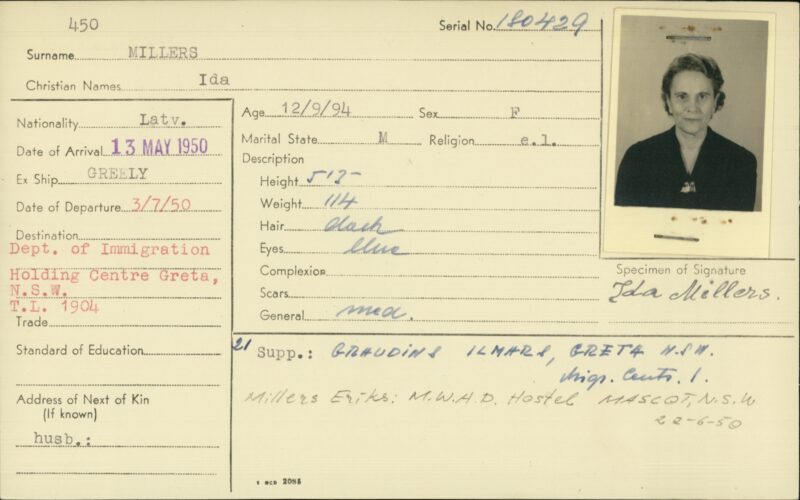 450
Serial No. 180429
Surname MILLERS
Christian Names Ida
Nationality Latv.
Date of Arrival 13 MAY 1950
Ex Ship GREELY
Date of Departure 3/7/50
Destination
Dept. of Immigration
Holding Centre Greta,
N.S.W.
T.L. 1904
Trade
Standard of Education
Address of Next of Kin
(If known)
husb.:
Age 12/9/94 Sex F
Marital State M Religion e.l.
Description
Height 5'5"
Weight 114
Hair dark
Eyes blue
Complexion
Scars
General med.
Specimen of Signature
Ida Millers.
21 Supp.: GRAUDINS ILMARS, GRETA N.S.W.
Migr. Centr. 1.
Millers Eriks: M.W.A.D. Hostel MASCOT, N.S.W
22-6-50
2085